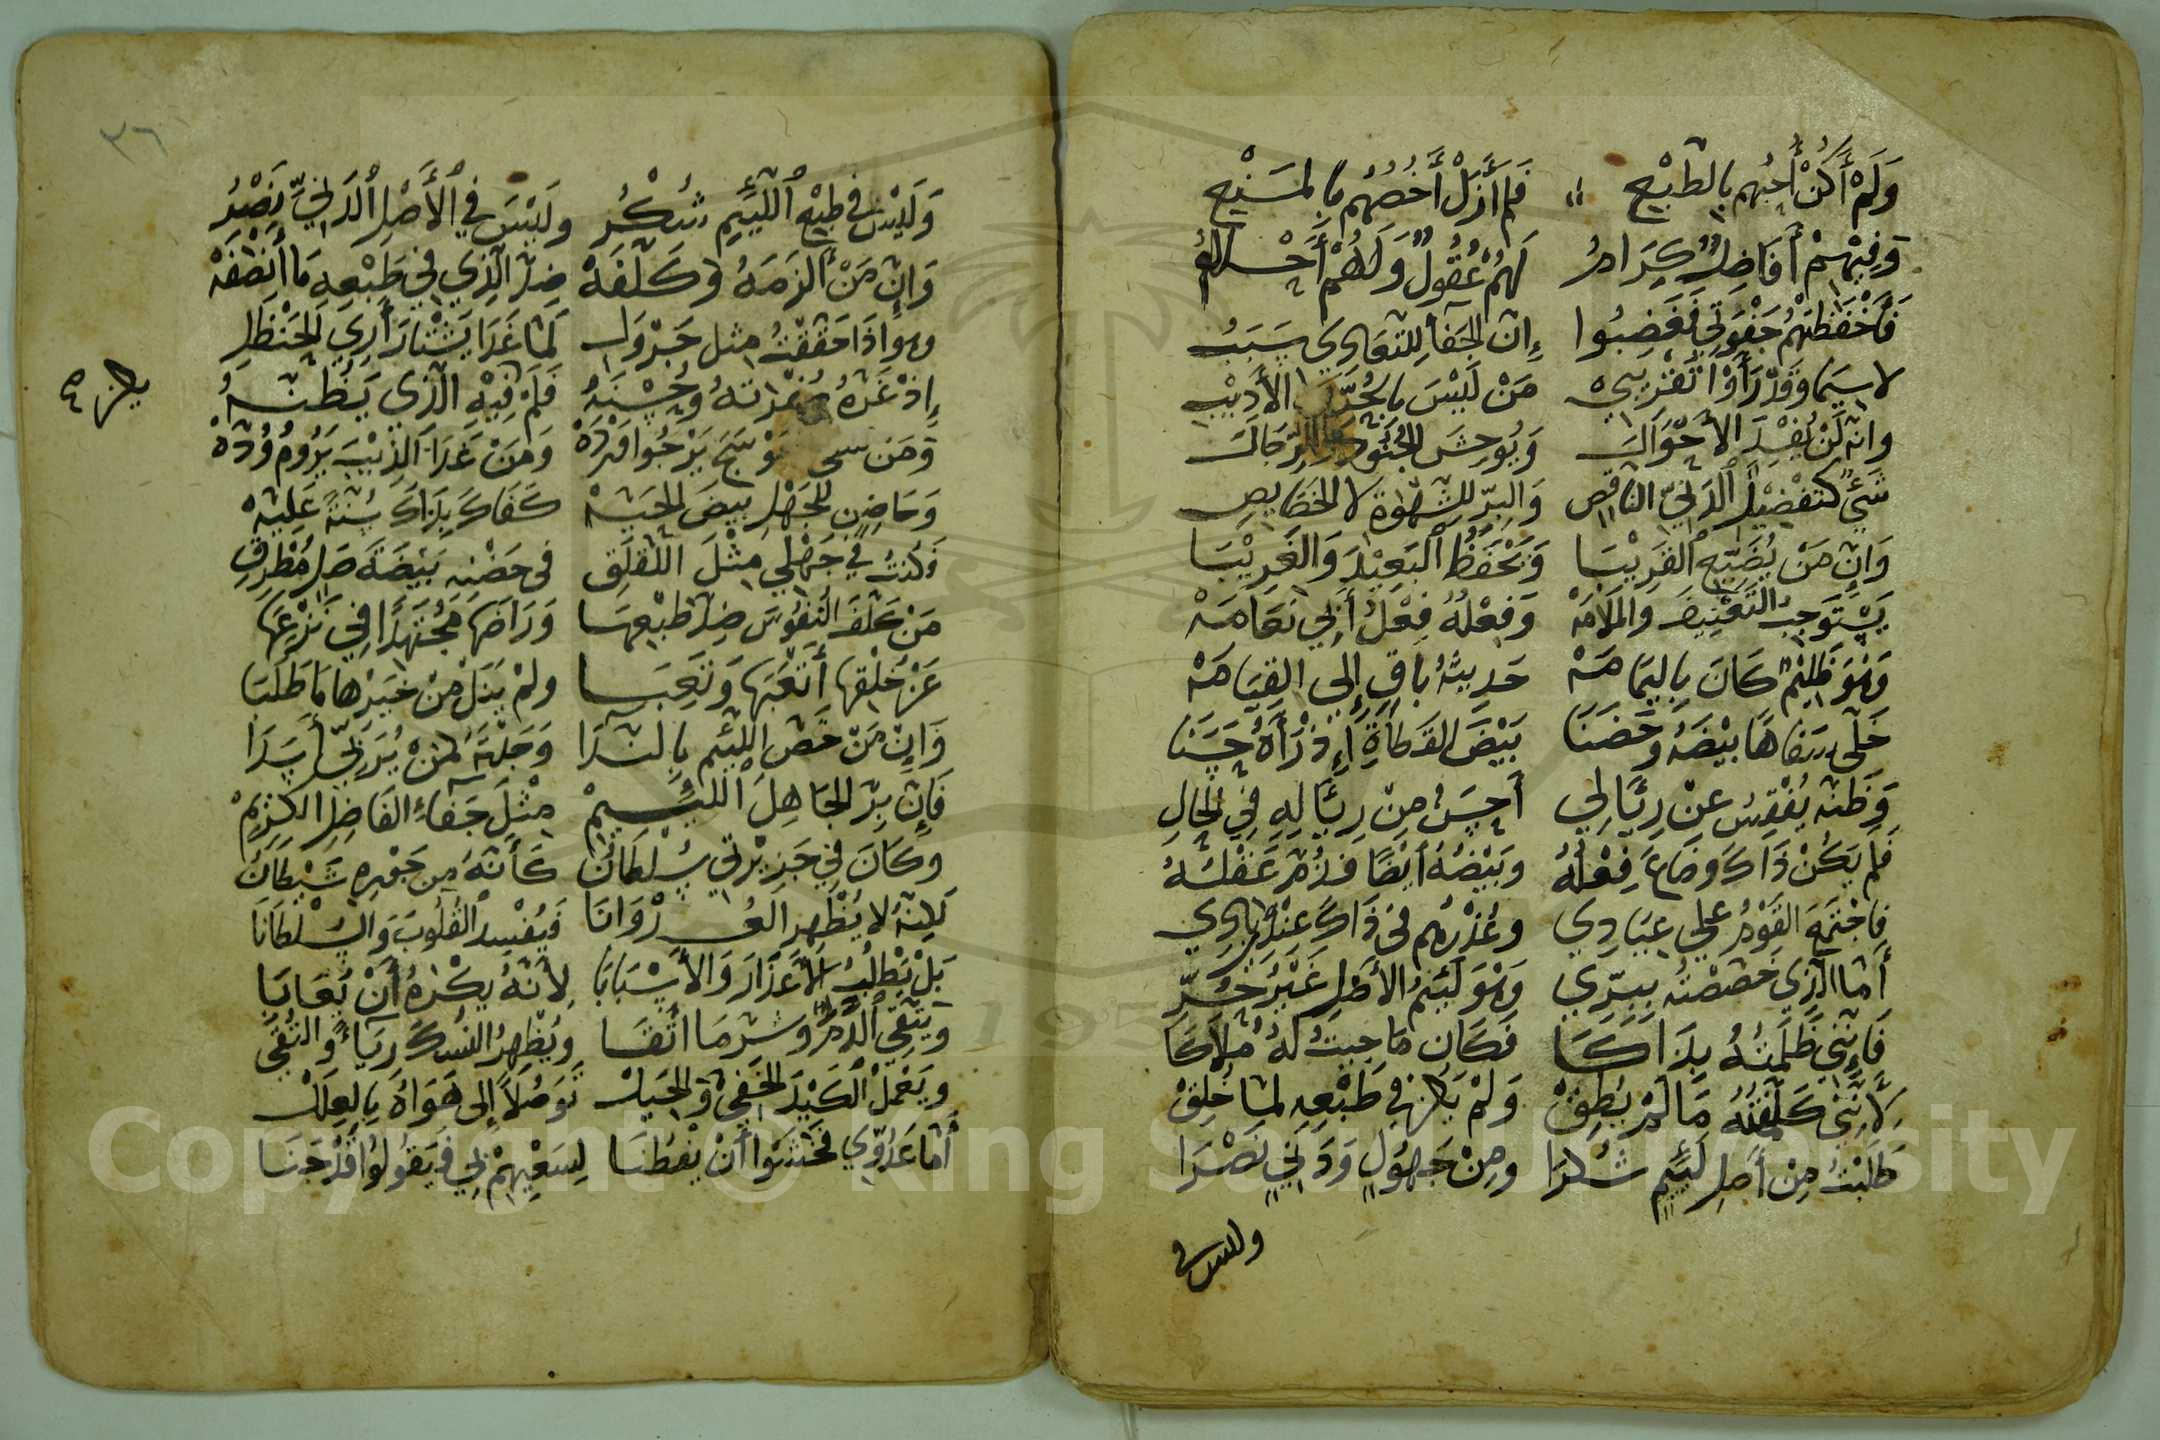 وَلَمْ أَكُنْ أُحِبُّهم بالطَّبْعِ فَلم أَزَلْ أَخُصُّهُم بالمَنْعِ
وَفِيهِمْ أَفَاضِلٌ كِرَامُ لَهُمْ عُقُولٌ وَلَهُمْ أَحْلَامُ
فَأَحْفَظَتْهُمْ جَفْوَتِي فَغَضِبُوا إِنَّ الجَفَا لِلتَّعَادِي سَبَبُ
لا سِيَّمَا وَقَدْ رَأَوْا تَقْرِيبِي مَنْ لَيْسَ بالحُرِّ الأَدِيْبِ
وَإِنَّهُ لَنْ يُفْسِدَ الأَحْوَالَ وَيُوحِشَ الجُنُودَ وَالرِّجَالَ
شَيْءٌ كَتَفْضِيْلِ الدَّنِيِّ النَّاقِصِ وَالبِرِّ لِلشَّهْوَةِ لا الخَصَايِصِ
وَإِنَّ مَنْ يُضَيِّعِ القَرِيْبَا وَيَحْفَظُ البَعِيْدَ وَالغَرِيْبَا
يَسْتَوجِبُ التَّعْنِيفَ وَالمَلَامَهْ وَفِعْلُهُ فِعْلُ أَبِي نَعَامَهْ
وَهْوَ ظَلِيْمٌ كَانَ بِاليَمَامَهْ حَدِيثُهُ بَاقٍ إِلى القِيَامَهْ
خَلَّى سَفَاهًا بَيْضَهُ وَحَضَنَا بَيْضَ القَطَاةِ إِذْ رَآهُ حَسَنَا
وَظَنَّهُ يُفْقِسُ عَنْ رِئَالِ أَحْسَنَ مِنْ رِئَالِهِ فِي الحَالِ
فَلَم يَكُنْ ذَاكَ وَضَاعَ فِعْلُهُ وَبَيْضُهُ أَيْضًا فَذُمَّ عَقْلُهُ
فَاجْتَمَعَ القَوْمُ عَلَى عِنَادِي وَعُذْرُهُم في ذَاكَ عِنْدِي بَادِي
أَمَّا الَّذِي خَصَصْتُهُ بِبِرِّي وَهْوَ لَئِيمُ الأَصْلِ غَيْرُ حُرِّ
فَإِنَّنِي ظَلَمْتُهُ بِذَاكَا فَكَانَ مَا جِيتُ لَهُ هَلَاكَا
لِأَنَّنِي كَلَّفْتُهُ مَا لَمْ يُطِقْ وَلَمْ يَكُنْ فِي طَبْعِهِ لِمَا خُلِقْ
طَلَبْتُ مِنْ أَصْلٍ لَئِيمٍ شُكْرَا وَمِنْ جَهُولٍ وَدَنِيٍّ نَصْرَا
وليس في
٣٦
وَلَيْسَ في طَبْعِ اللَّئِيمِ شُكْرُ وَلَيْسَ فِي الأَصْلِ الدَّنِيِّ نَصْرُ
وَإِنَّ مَنْ أَلْزَمَهُ وَكَلَّفَهْ ضِدَّ الَّذِي فِي طَبْعِهِ مَا أَنْصَفَهْ
وهو إِذَا حَقَّقْتُ مِثْلُ جَرْوَلِ لَمَّا غَدَا يَشْتَارُ أَرْيَ الحَنْظَلِ
إِذْ غَرَّهُ خُضْرَتُهُ وَحُسْنُهُ فَلَمْ فِيْهِ الَّذِي يَظُنُّهُ
يكن صح
وَمَن عَوْسَجَ يَرْجُو وَرْدَهْ وَمَنْ غَدَا الذِّيبَ يَرُومُ وُدَّهْ
وَحَاضِنٍ لِلجَهْلِ بَيْضَ الحَيَّهْ كَفَاكَ بِذَاكَ سُنَّةً عَلِيَّهْ
فَكُنتُ فِي جَهْلِي مِثْلَ اللَّقْلَقِ في حَضْنِهِ بَيْضَةَ صِلٍّ مُطْرِقِ
مَنْ كَلَّفَ النُّفُوسَ ضِدَّ طَبْعِهَا وَرَاضَهَا مُجْتَهِدًا فِي نَزْعِهَا
عَنْ خُلْقِهَا أَتْعَبَهَا وَتَعِبَا وَلَمْ يَنَلْ مِنْ خَيْرِهَا مَا طَلَبَا
وَإِنَّ مَنْ خَصَّ اللَّئِيمَ بِالنَّدَا وَجَدْتَهُ لَمَنْ يُرَبِّي أَسَدَا
فَإِنَّ بِرَّ الجَاهِلَ اللَّئِيمْ مِثْلُ جَفَاءِ الفَاضِلِ الكَرِيمْ
وَكَانَ فِي جَزِيْرَتِي سُلْطَانُ كَأَنَّهُ مِن جَوْرِهِ شَيْطَانُ
لَكِنَّهُ لا يُظْهِرُ العُدْوَانَا فَيُفْسِدُ القُلُوبَ وَالسُّلْطَانَا
بَلْ يَطْلُبُ الأَعْذَارَ وَالأَسْبَابَا لِأَنَّهُ يَكْرَهُ أَنْ يُعَابَا
وَيَتَّقِي الذَّمَّ وَشَرَّ مَا اتَّقَا وَيُظْهِرُ النُّسْكَ رِيَاءً وَالتُّقَى
وَيَعْمَلُ الكَيْدَ الخَفِيَّ وَالحِيَلْ تَوَصُّلًا إِلَى هَوَاهُ بِالعِلَلْ
أَمَّا عَدُوِّي فَخَشَوْا أَنْ يَفْطُنَا لِسَعْيِهِمْ بِي فَيَقُولُوا قَدْ جَنَا
Copyright © King Saud University
195